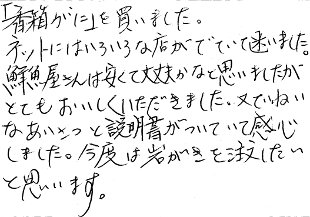 「香箱がに」を買いました。
ネットにはいろいろな店がでていて迷いました。
鮮魚屋さんは安くて大丈夫かなと思いましたが
とてもおいしくいただきました。又ていねい
なあいさつと説明書がついていて感心
しました。今度は岩がきを注文したい
と思います。